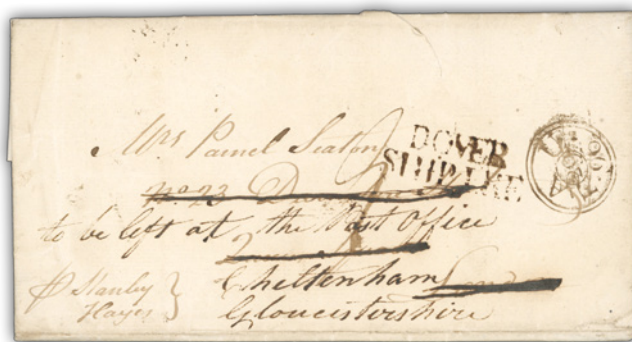 Mrs Pamel Seaton
DOVER
SHIP LRE
No 23
to be left at the Post Office
Cheltenham
Gloucestershire
P Stanley
Hayes